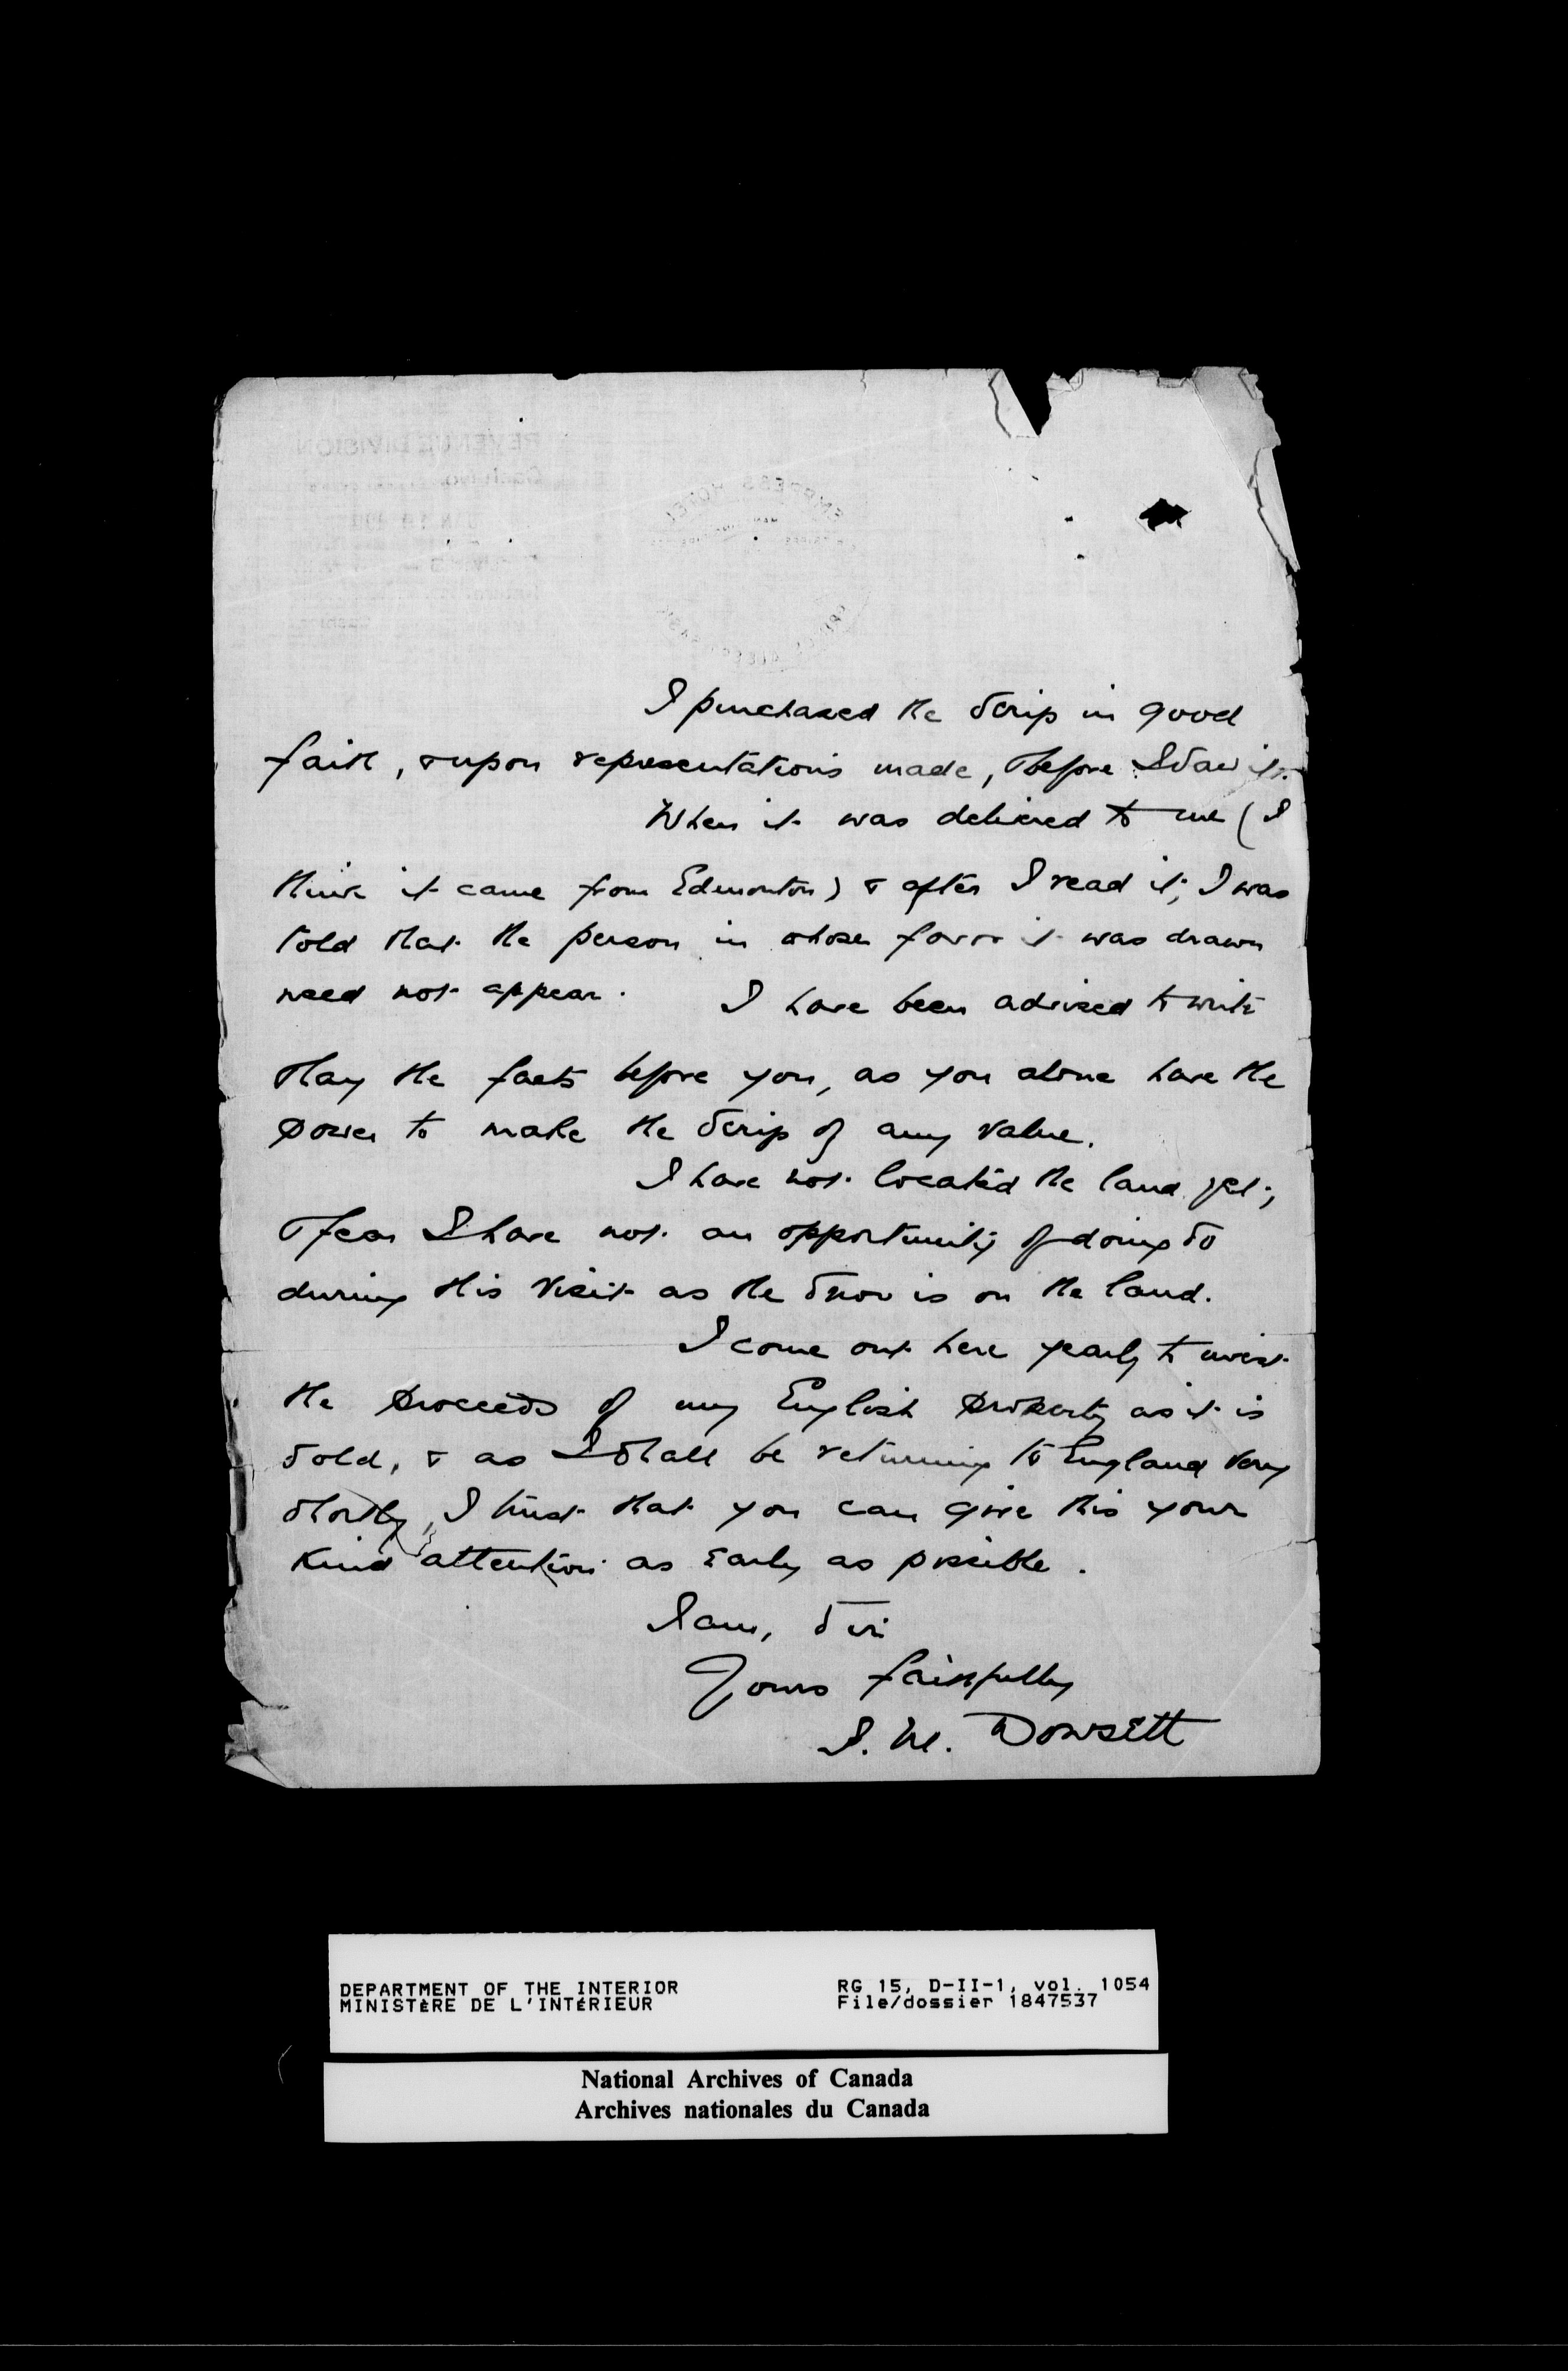 I purchased the Scrip in good
faith, & upon representations made, & before I saw it.
When it was delivered to me (I
think it came from Edmonton) & after I read it, I was
told that the person in whose favor it was drawn
need not appear. I have been advised to write
& lay the facts before you, as you alone have the
power to make the Scrip of any value.
I have not located the land yet,
& fear I have not an opportunity of doing so
during this visit as the snow is on the land.
I come out here yearly to invest
the proceeds of my English property as it is
sold, & as I shall be returning to England very
shortly, I trust that you can give this your
kind attention as early as possible.
I am, Sir
Yours faithfully
Dowsett
DEPARTMENT OF THE INTERIOR RG 15, D-II-1, vol. 1054
MINISTÈRE DE L'INTÉRIEUR File/dossier 1847537
National Archives of Canada
Archives nationales du Canada